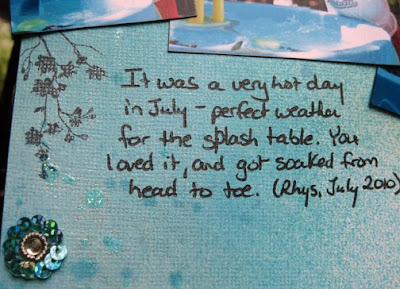 It was a very hot day
in July - perfect weather
for the splash table. You
loved it, and got soaked from
head to toe. (Rhys, July 2010)